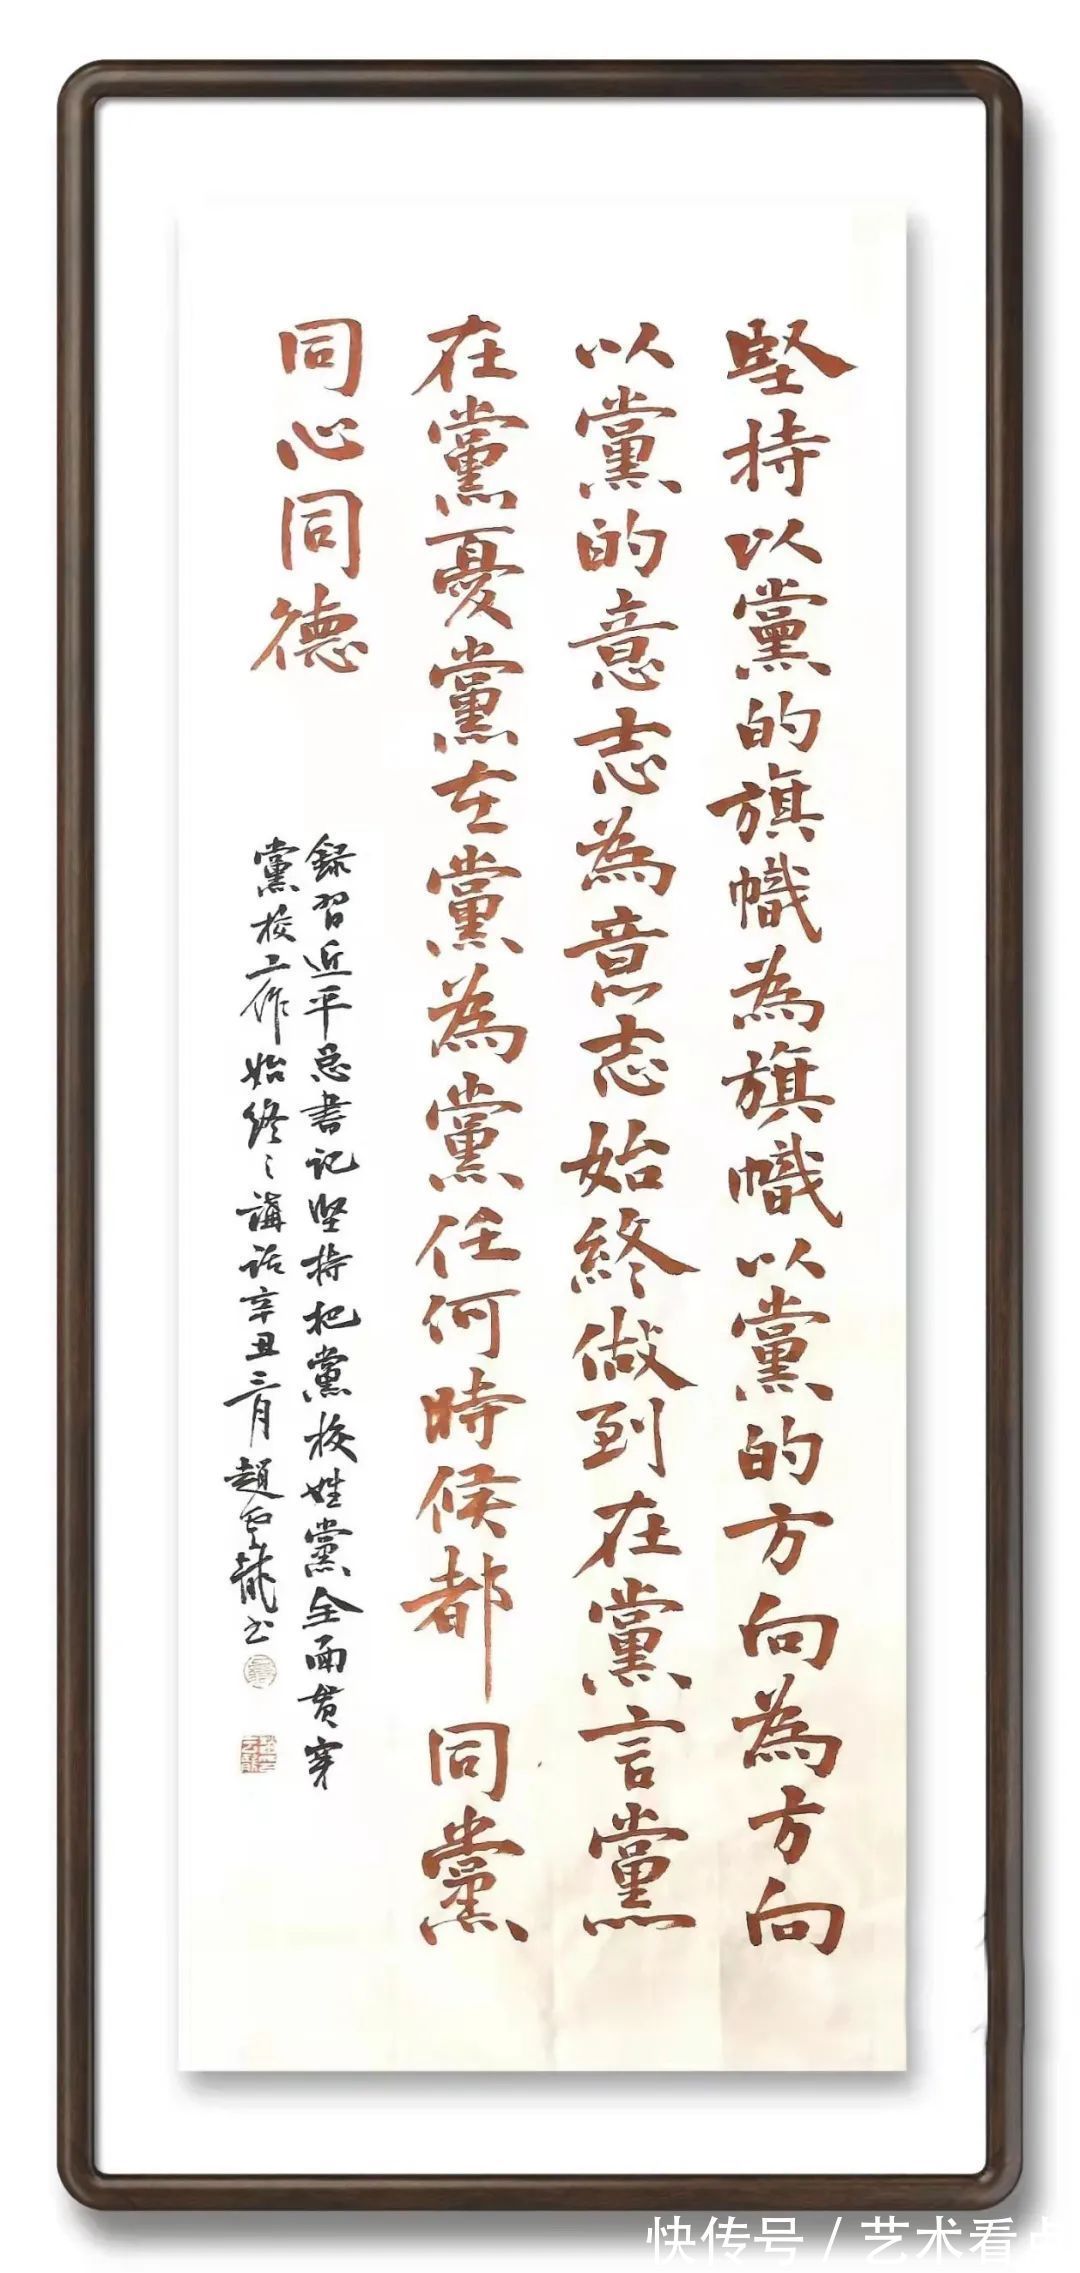 堅持以黨的旗幟為旗幟以黨的方向為方向
以黨的意志為意志始終做到在黨言黨
在黨憂黨在黨為黨任何時候都同黨
同心同德
録習近平总書记坚持把黨校姓黨全面贯穿
黨校工作始终之講话辛丑三月趙云龍书
快传号 / 艺术看点